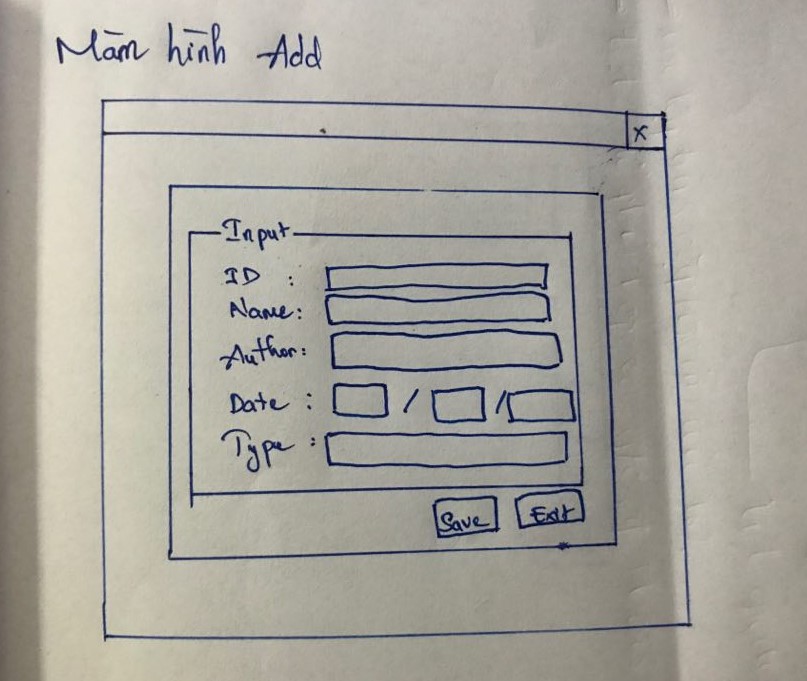 Màn hình Add
X
Input
ID :
Name:
Author:
Date : / /
Type :
Save Exit